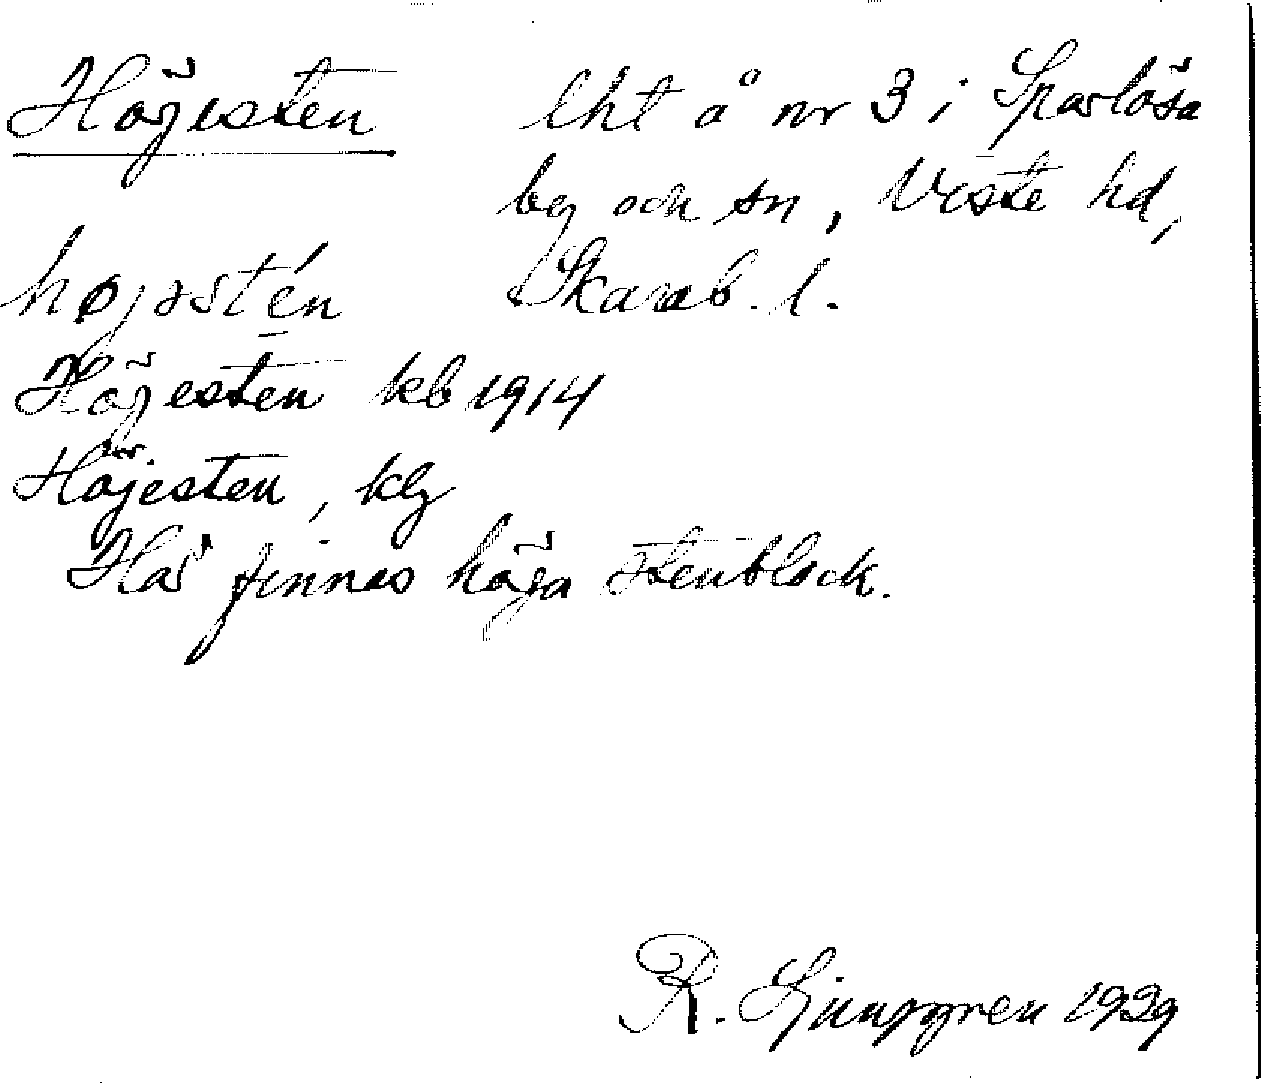 Höjesten lht å nr 3 i Sparlösa
by och sn, Viste hd,
Skarab. l.
højəstén
Höjesten kb 1914
Höjesten, klg
Här finnes höga stenblock.
R. Ljunggren 1929